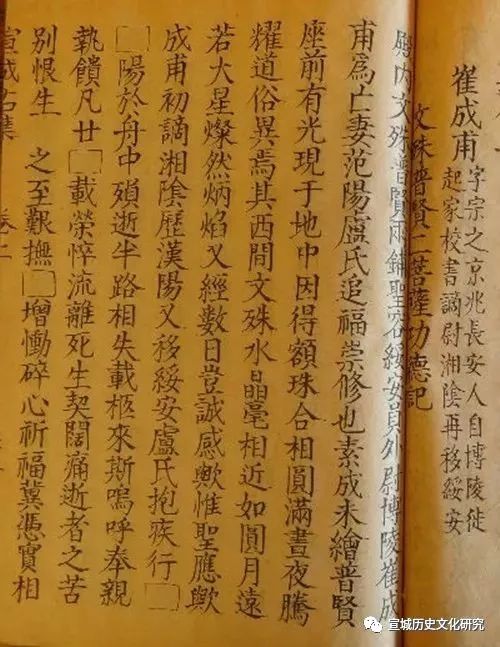 崔成甫
字宗之京兆長安人自博陵徙
起家校書謫尉湘陰再移綏安
文殊普賢二菩薩功德記
廨內文殊普賢兩鋪聖容綏安員外尉博陵崔成
甫為亡妻范陽盧氏追福崇修也素成未繪普賢
座前有光現于地中因得額珠合相圓滿晝夜騰
耀道俗異焉其西間文殊水晶毫相近如圓月遠
若大星燦然炳焰又經數日豈誠感歟惟聖應歟
成甫初謫湘陰歷漢陽又移綏安盧氏抱疾行□
□陽於舟中殞逝半路相失載柩來斯嗚呼奉親
執饋凡廿□載榮悴流離死生契闊痛逝者之苦
別恨生 之至艱撫□增慟碎心祈福冀憑實相
宣城右集 卷二
宣城历史文化研究